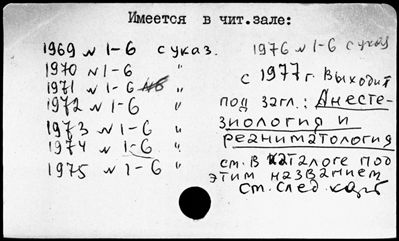 Имеется в чит.зале:
1969 № 1-6 с указ.
1970 № 1-6 "
1971 № 1-6 "
1972 № 1-6 "
1973 № 1-6 "
1974 № 1-6 "
1975 № 1-6 "
1976 № 1-6 с указ
с 1977 г. Выходит
под загл.: Анесте-
зиология и
реаниматология
см. в каталоге под
этим названием
см. след.